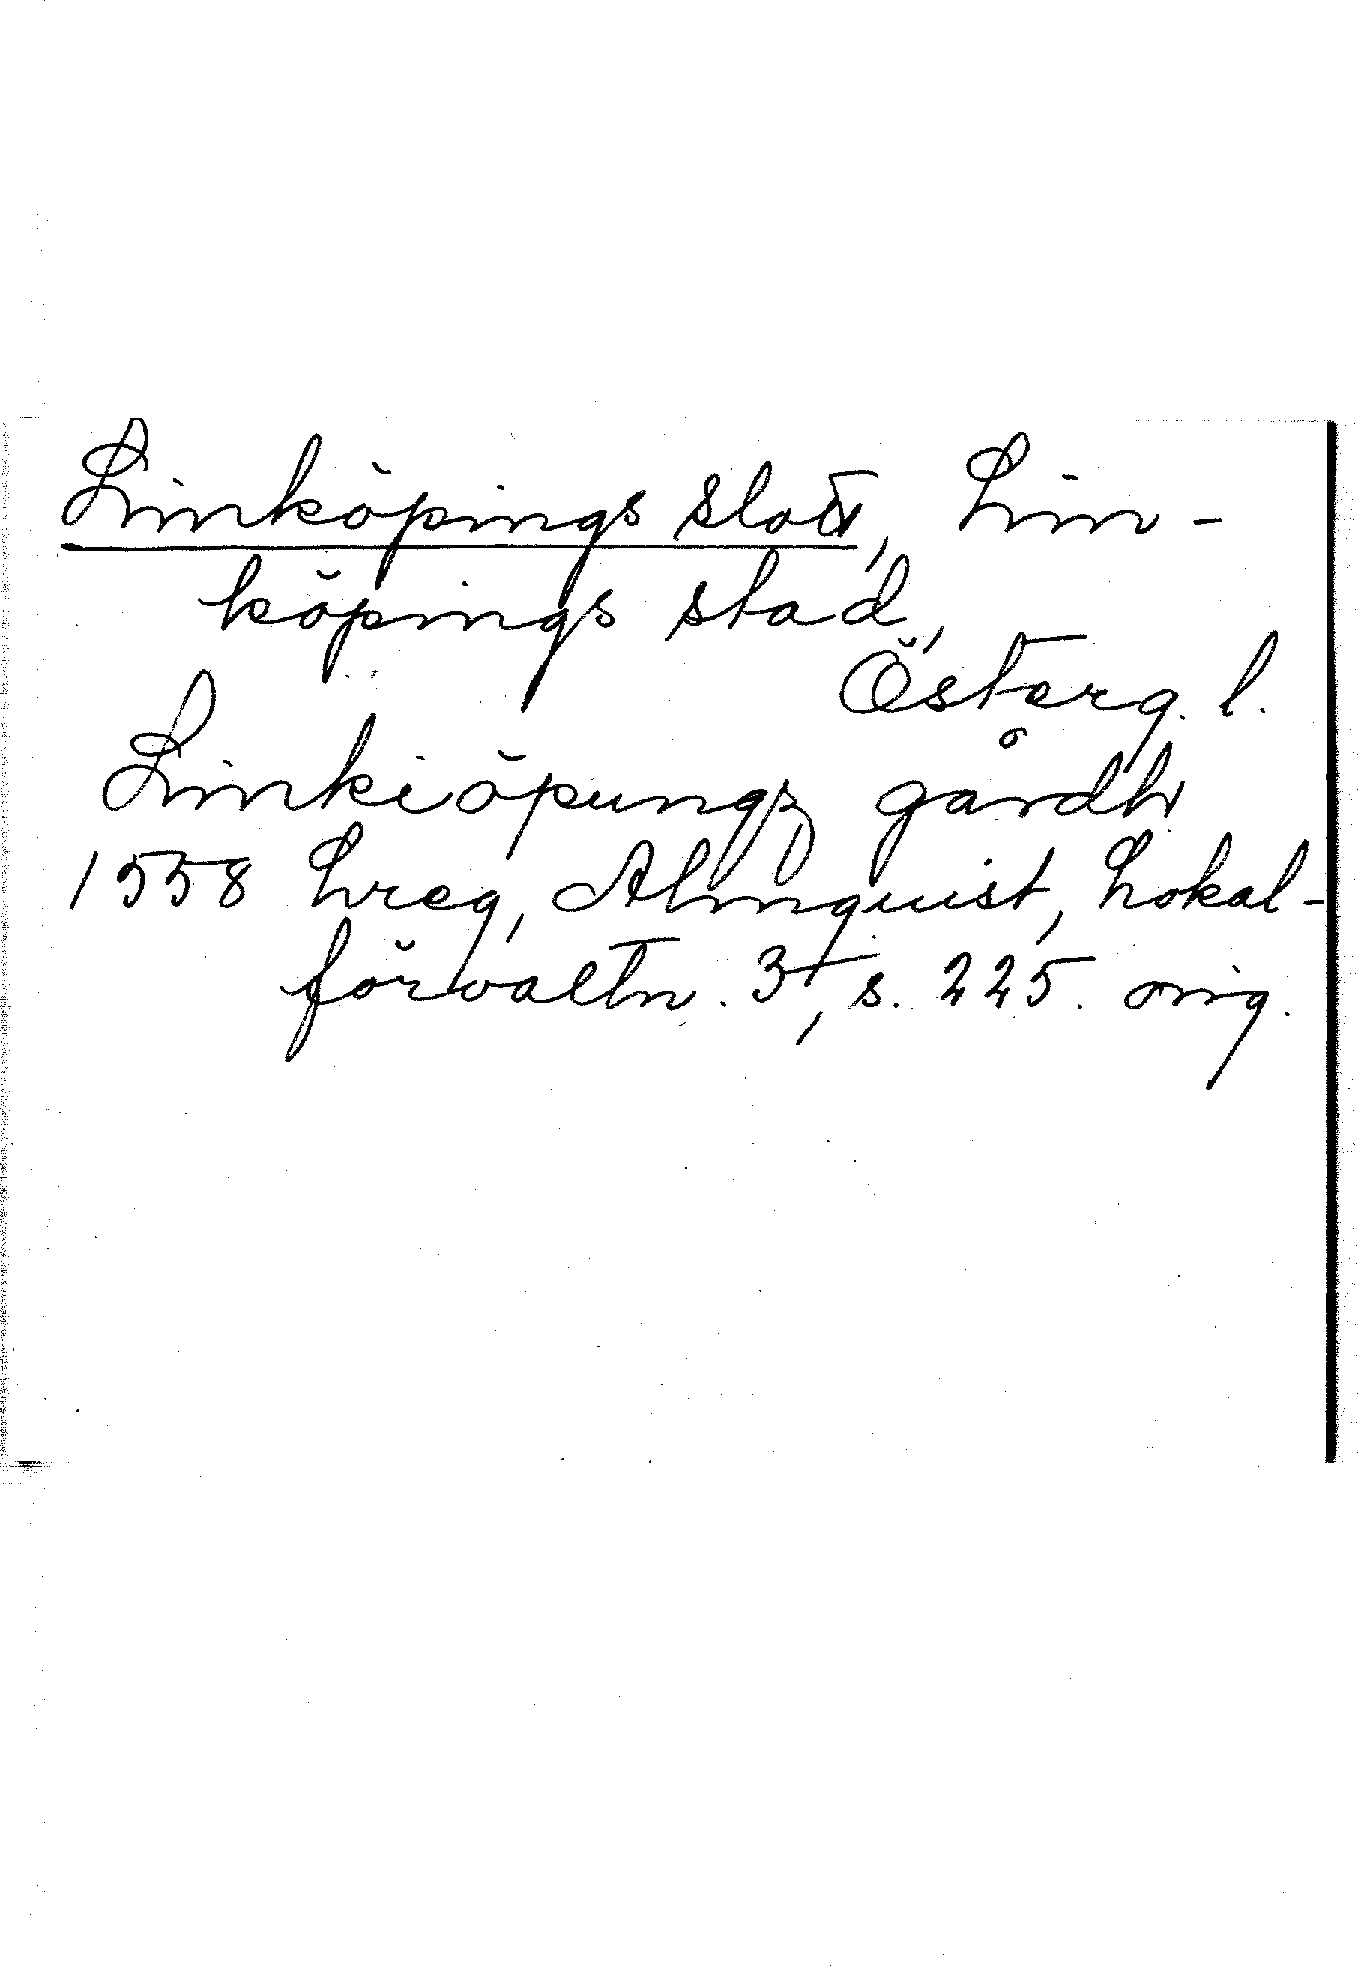 Linköpings slott, Lin-
köpings stad,
Österg. l.
Linkiöpungz gårdh
1558 Lreg, Almquist, Lokal-
förvaltn. 3, s. 225. orig.